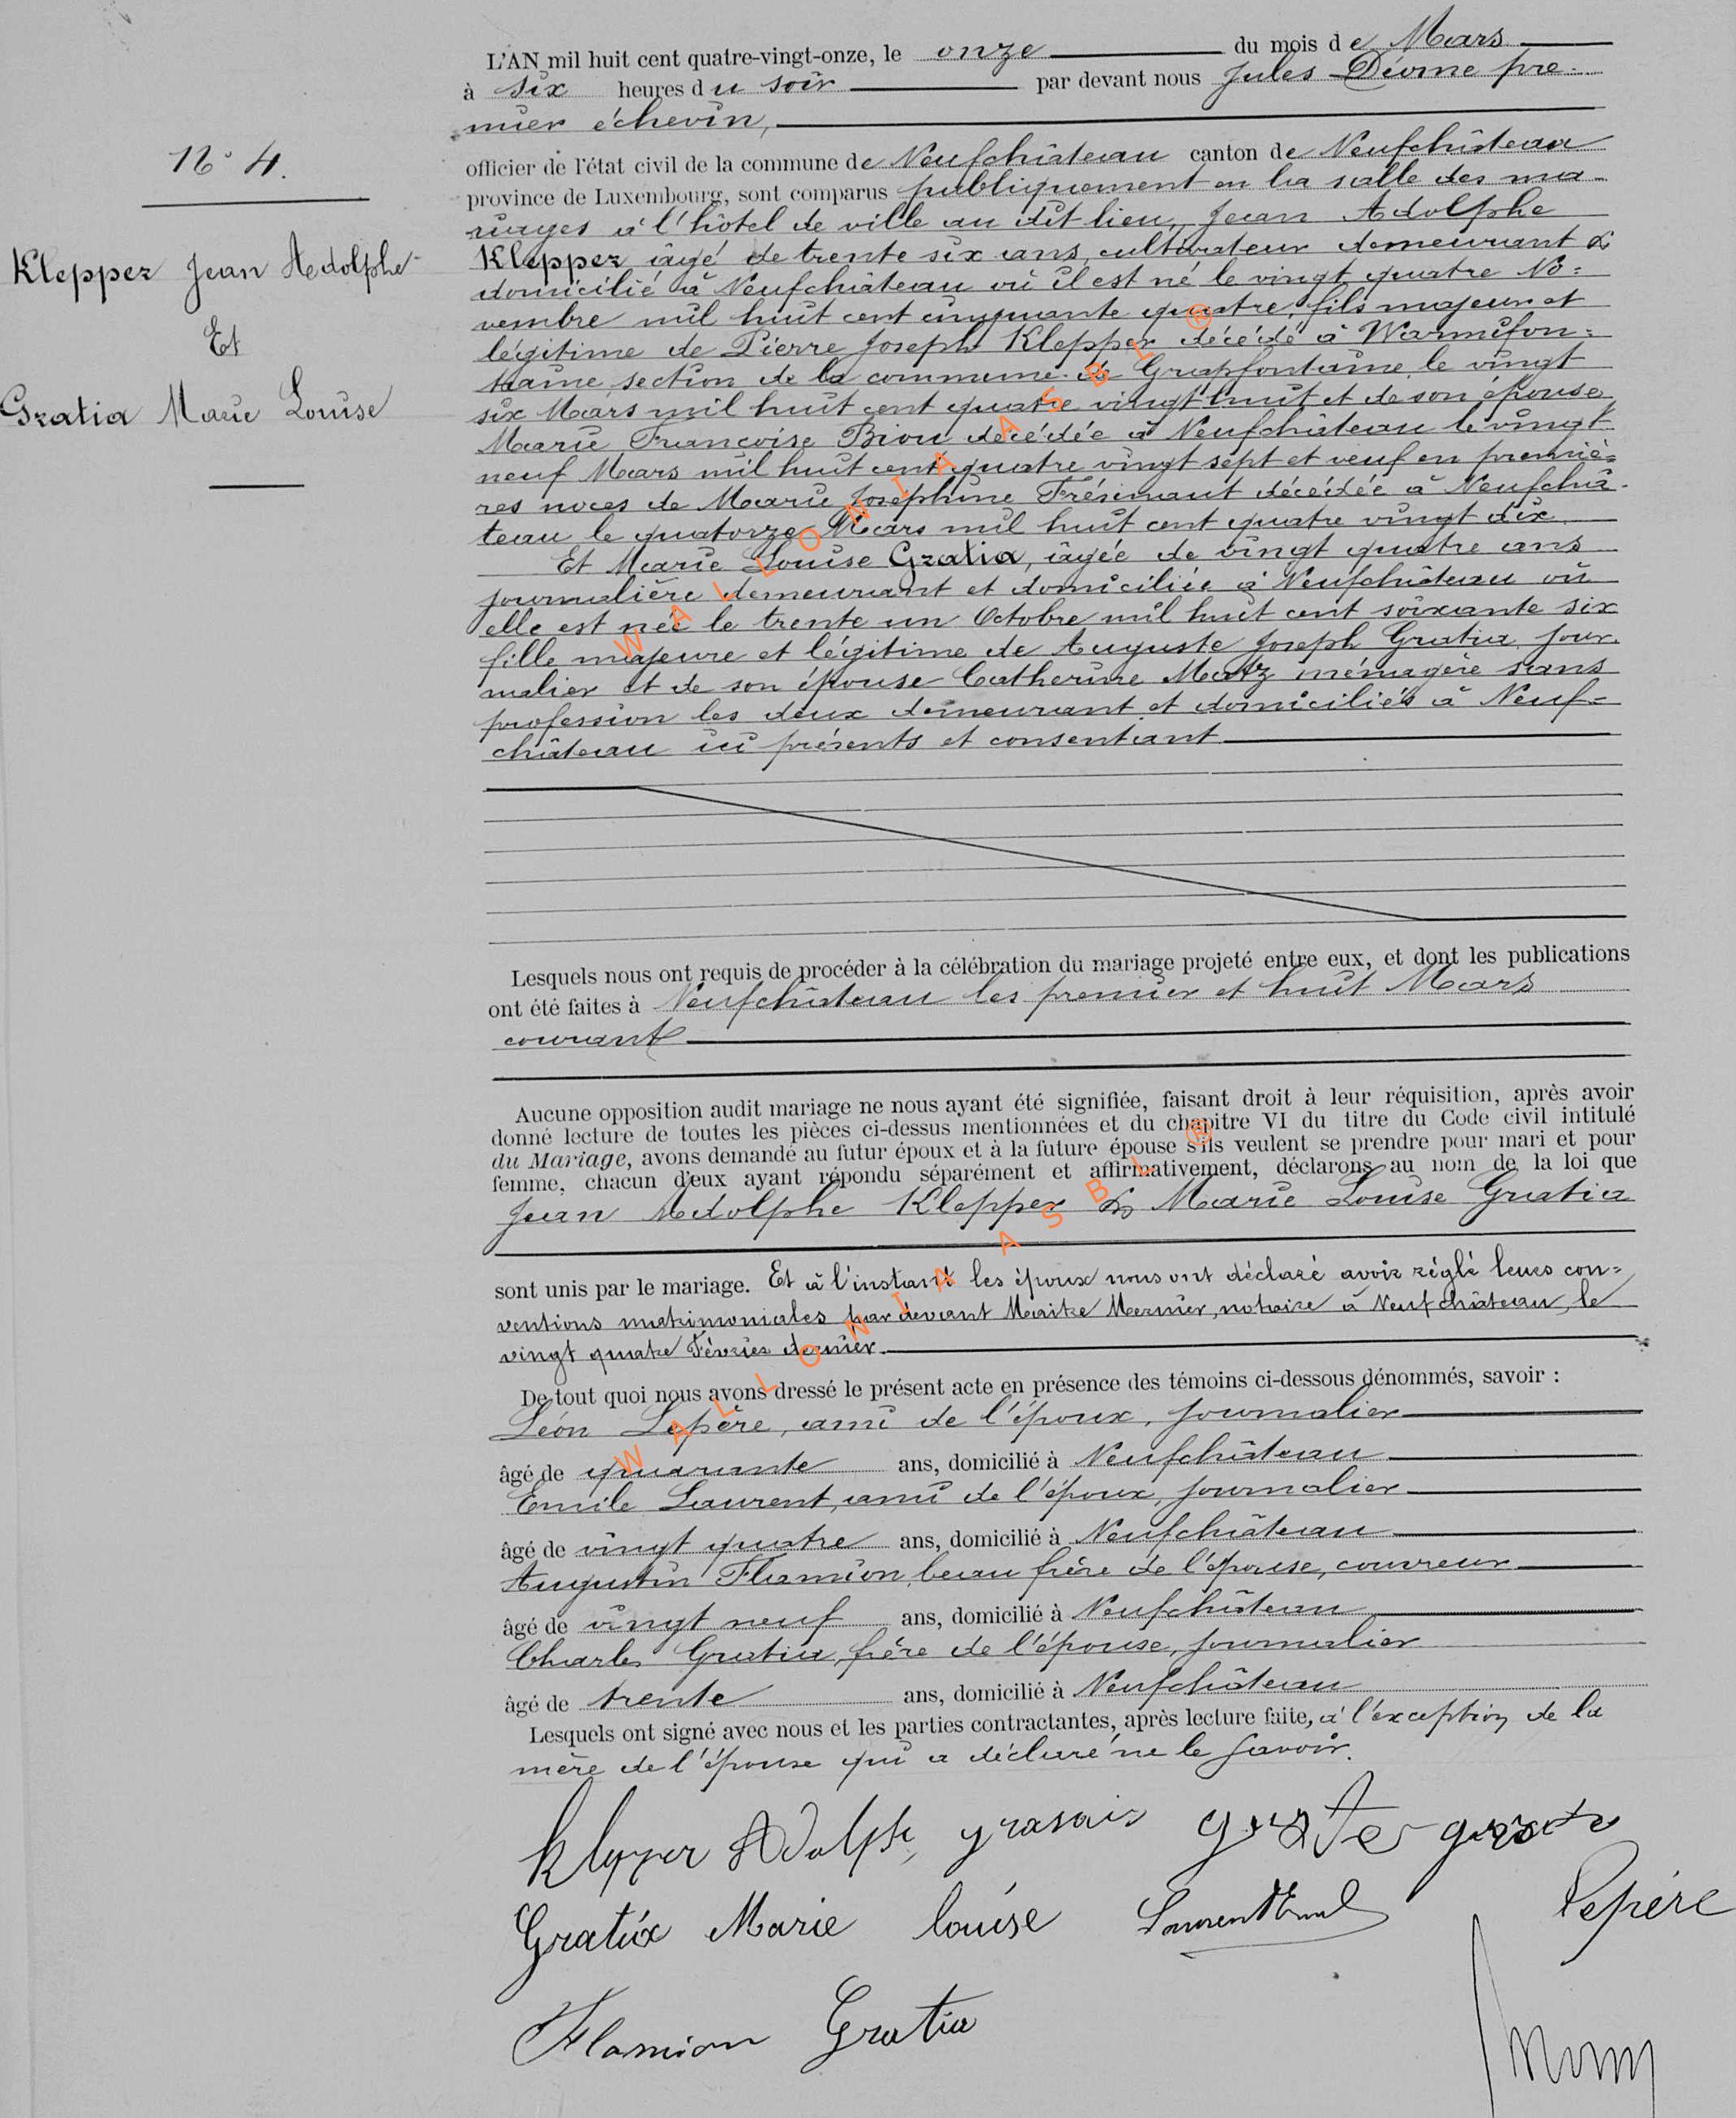 N° 4.
Klepper Jean Adolphe
Et
Gratia Marie Louise
L'AN mil huit cent quatre-vingt-onze, le onze du mois de Mars
à six heures du soir par devant nous Jules Deome pre-
mier échevin,
officier de l'état civil de la commune de Neufchâteau canton de Neufchâteau
province de Luxembourg, sont comparus publiquement en la salle des ma-
riages à l'hôtel de ville au dit lieu, Jean Adolphe
Klepper âgé de trente six ans, cultivateur demeurant &
domicilié à Neufchâteau où il est né le vingt quatre No=
vembre mil huit cent cinquante quatre, fils majeur et
légitime de Pierre Joseph Klepper décédé à Warmifon=
taine, section de la commune de Grapfontaine, le vingt
six Mars mil huit cent quatre vingt huit et de son épouse
Marie Françoise Biou décédée à Neufchâteau le vingt
neuf Mars mil huit cent quatre vingt sept et veuf en premiè=
res noces de Marie Joséphine Frésimaut décédée à Neufchâ-
teau le quatorze Mars mil huit cent quatre vingt dix
Et Marie Louise Gratia, âgée de vingt quatre ans
journalière demeurant et domiciliée à Neufchâteau où
elle est née le trente un Octobre mil huit cent soixante six
fille majeure et légitime de Auguste Joseph Gratia jour-
nalier et de son épouse Catherine Matz ménagère sans
profession les deux demeurant et domiciliés à Neuf=
château ici présents et consentant
Lesquels nous ont requis de procéder à la célébration du mariage projeté entre eux, et dont les publications
ont été faites à Neufchâteau les premier et huit Mars
courant
Aucune opposition audit mariage ne nous ayant été signifiée, faisant droit à leur réquisition, après avoir
donné lecture de toutes les pièces ci-dessus mentionnées et du chapitre VI du titre du Code civil intitulé
du Mariage, avons demandé au futur époux et à la future épouse s'ils veulent se prendre pour mari et pour
femme, chacun d'eux ayant répondu séparément et affirmativement, déclarons au nom de la loi que
Jean Adolphe Klepper & Marie Louise Gratia
sont unis par le mariage. Et à l'instant les époux nous ont déclaré avoir réglé leurs con=
ventions matrimoniales par devant Maitre Mernier, notaire à Neufchâteau, le
vingt quatre Février dernier.
De tout quoi nous avons dressé le présent acte en présence des témoins ci-dessous dénommés, savoir :
Léon Lepère, ami de l'époux, journalier
âgé de quarante ans, domicilié à Neufchâteau
Emile Laurent, ami de l'époux, journalier
âgé de vingt quatre ans, domicilié à Neufchâteau
Augustin Flamion, beau frère de l'épouse, couvreur
âgé de vingt neuf ans, domicilié à Neufchâteau
Charles Gratia, frère de l'épouse, journalier
âgé de trente ans, domicilié à Neufchâteau
Lesquels ont signé avec nous et les parties contractantes, après lecture faite, à l'exception de la
mère de l'épouse qui a déclaré ne le savoir.
Klepper Adolph
Gratia Marie louise Laurent Emil Lepére
Flamion Gratia
WALLONIA ASBL ®
WALLONIA ASBL ®